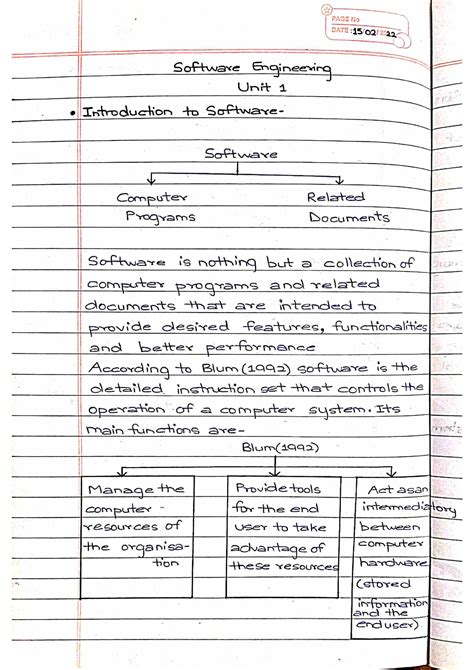 PAGE No
DATE :15/02/2022
Software Engineering
Unit 1
• Introduction to Software-
Software
Computer Programs
Related Documents
Software is nothing but a collection of
computer programs and related
documents that are intended to
provide desired features, functionalities
and better performance
According to Blum(1992) software is the
detailed instruction set that controls the
operation of a computer system. Its
main functions are-
Blum(1992)
Manage the
computer -
resources of
the organisa-
tion
Provide tools
for the end
user to take
advantage of
these resources
Act as an
intermediatory
between
computer
hardware
(stored
information
and the
enduser)